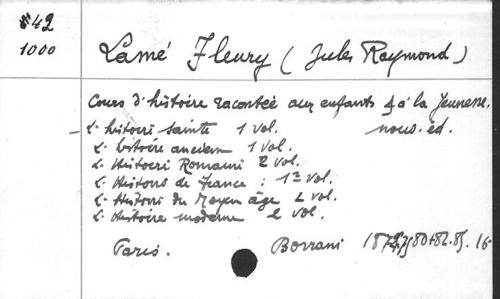 842
1000
Lamé Fleury (Jules Raymond)
Cours d'histoire racontée aux enfants & à la Jeunesse.
L'histoire sainte 1 vol. nouv. éd.
L'histoire ancienn 1 vol.
L'Histoire Romaine 2 vol.
L'Histoire de France : 1 vol.
L'Histoire du Moyen âge 2 vol.
L'Histoire moderne 2 vol.
Paris. Borrani 16